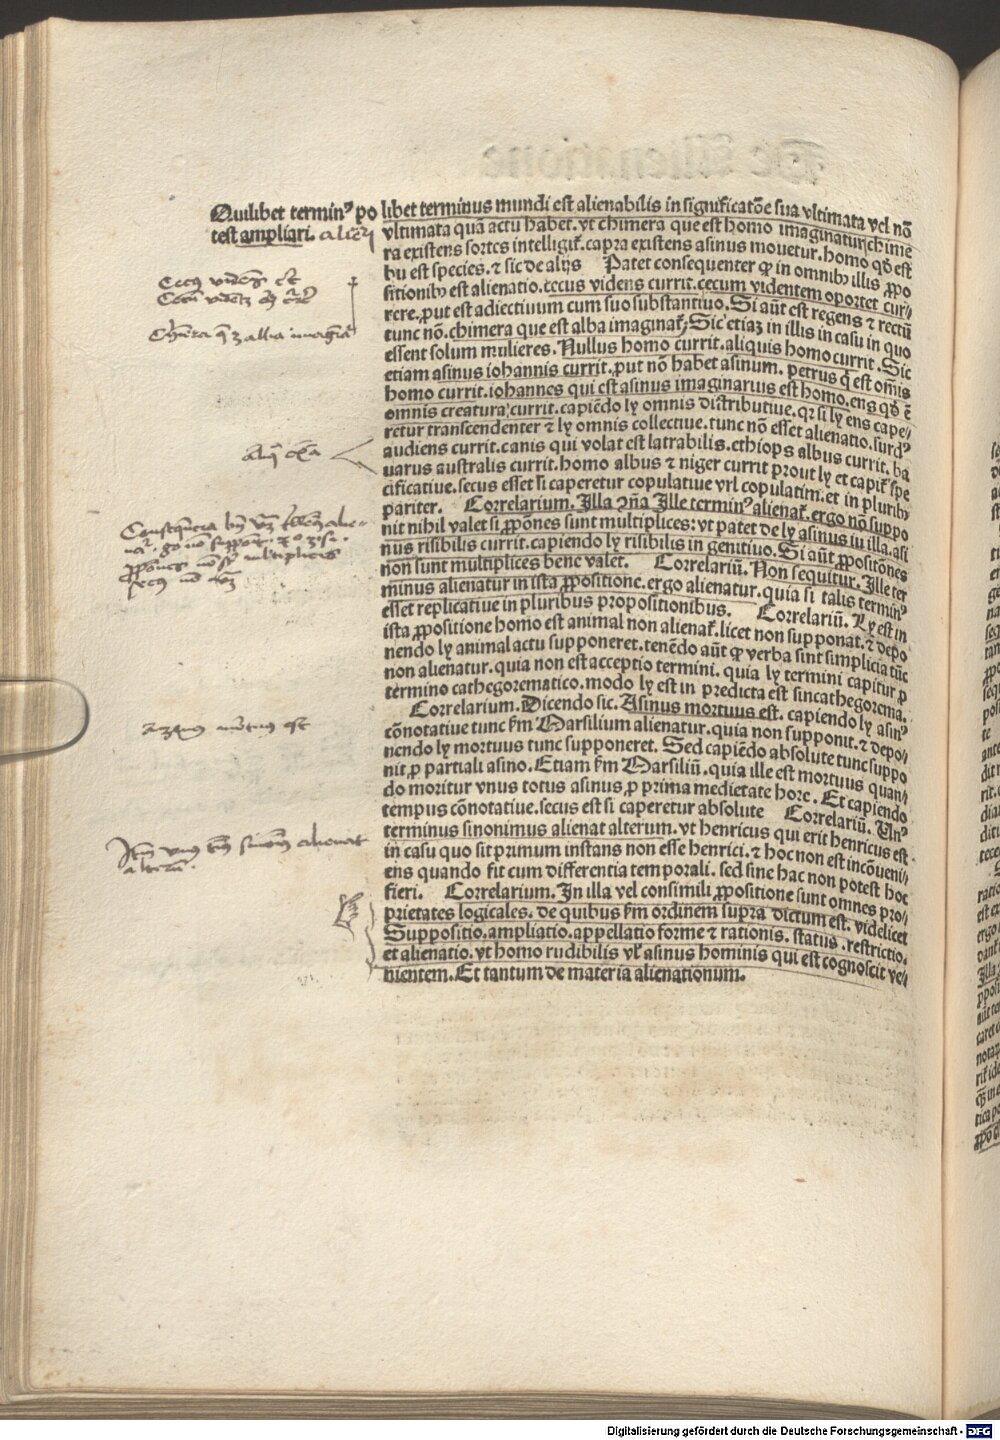 Quilibet terminꝰ po
test ampliari.
libet terminus mundi est alienabilis in significatōe sua vltimata vel nō
vltimata quā actu habet. vt chimera que est homo imaginatur chime
ra existens sortes intelligit̄. capra existens asinus mouetur. homo qd̄ est
hu est species. ⁊ sic de alijs Patet consequenter ꝙ in omnibꝰ illis ꝓpo
sitionibꝰ est alienatio. cecus videns currit. cecum videntem oportet cur/
rere. ꝓut est adiectiuum cum suo substantiuo. Si aūt est regens ⁊ rectū
tunc nō. chimera que est alba imaginat̄. Sic etiaz in illis in casu in quo
essent solum mulieres. Nullus homo currit. aliquis homo currit. Sic
etiam asinus iohannis currit. ꝓut nō habet asinum. petrus q̄ est om̄is
homo currit. iohannes qui est asinus imaginarius est homo. ens qd̄ ē
omnis creatura currit. capiēdo ly omnis distributiue. qꝛ si ly ens cape/
retur transcendenter ⁊ ly omnis collectiue. tunc nō esset alienatio. surdꝰ
audiens currit. canis qui volat est latrabilis. ethiops albus currit. ba
uarus australis currit. homo albus ⁊ niger currit prout ly et capit̄ spe
cificatiue. secus esset si caperetur copulatiue vel copulatim. et in pluribꝰ
pariter. Correlarium. Illa ꝯn̄a Ille terminꝰ alienat̄. ergo nō suppo
nit nihil valet si ꝓpōnes sunt multiplices: vt patet de ly asinus in illa. asi
nus risibilis currit. capiendo ly risibilis in genitiuo. Si aūt ꝓpositōnes
non sunt multiplices bene valet. Correlariū. Non sequitur. Ille ter
minus alienatur in ista ꝓpositione. ergo alienatur. quia si talis terminꝰ
esset replicatiue in pluribus propositionibus. Correlariū. Ly est in
ista ꝓpositione homo est animal non alienat̄. licet non supponat. ⁊ depo
nendo ly animal actu supponeret. tenēdo aūt ꝙ verba sint simplicia tūc
non alienatur. quia non est acceptio termini. quia ly termini capitur ꝓ
termino cathegorematico. modo ly est in predicta est sincathegorema.
Correlarium. Dicendo sic. Asinus mortuus est. capiendo ly asinꝰ
cōnotatiue tunc s̄m Marsilium alienatur. quia non supponit. ⁊ depo/
nendo ly mortuus tunc supponeret. Sed capiēdo absolute tunc suppo
nit ꝓ partiali asino. Etiam s̄m Marsiliū. quia ille est mortuus quan/
do moritur vnus totus asinus ꝓ prima medietate hore. Et capiendo
tempus cōnotatiue. secus est si caperetur absolute Correlariū. Vnꝰ
terminus sinonimus alienat alterum. vt henricus qui erit henricus est
in casu quo sit primum instans non esse henrici. ⁊ hoc non est incōueni/
ens quando fit cum differentia temporali. sed sine hac non potest hoc
fieri. Correlarium. In illa vel consimili ꝓpositione sunt omnes pro/
prietates logicales. de quibus s̄m ordinem supra dictum est. videlicet
Suppositio. ampliatio. appellatio forme ⁊ rationis. status. restrictio.
et alienatio. vt homo rudibilis vl̄ asinus hominis qui est cognoscit ve/
nientem. Et tantum de materia alienationum.
Digitalisierung gefördert durch die Deutsche Forschungsgemeinschaft - DFG